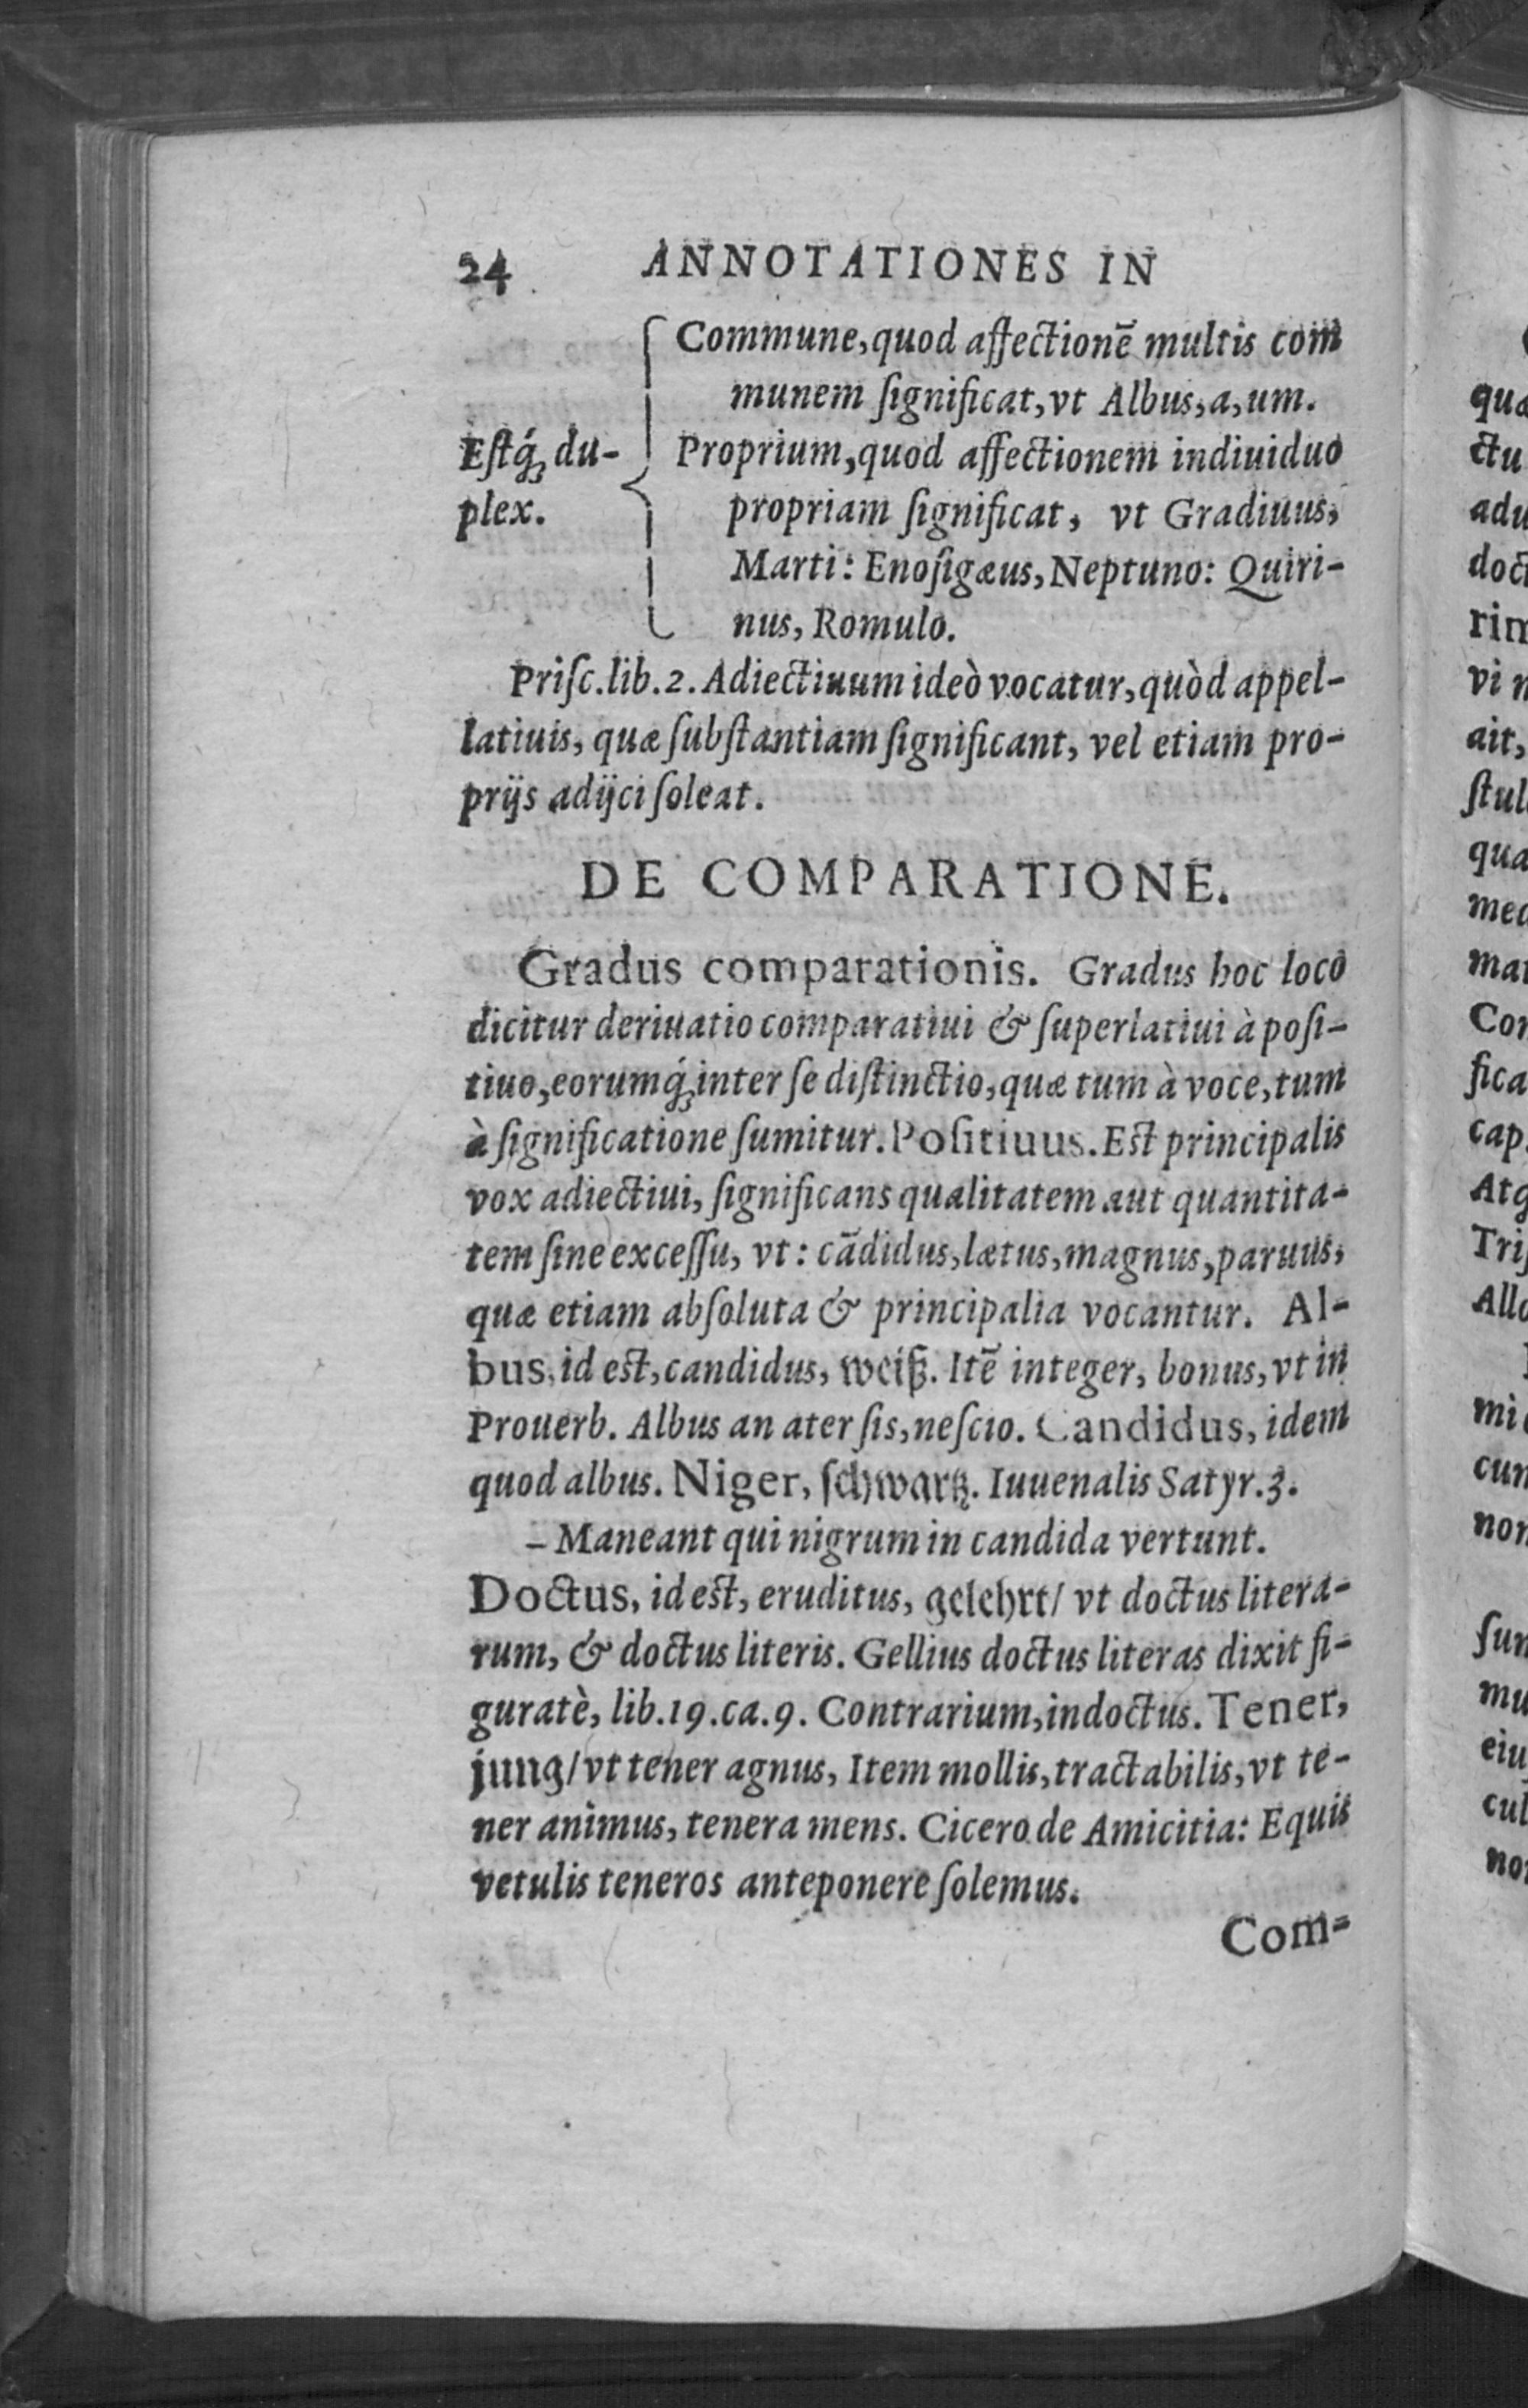 24 ANNOTATIONES IN
Commune, quod affectionē multis com
munem ſignificat, vt Albus, a, um.
Eſtq́ꝫ du-
plex.
Proprium, quod affectionem indiuiduo
propriam ſignificat, vt Gradiuus,
Marti: Enoſigæus, Neptuno: Quiri-
nus, Romulo.
Priſc. lib. 2. Adiectiuum ideò vocatur, quòd appel-
latiuis, quæ ſubſtantiam ſignificant, vel etiam pro-
prijs adijci ſoleat.
DE COMPARATIONE.
Gradus comparationis. Gradus hoc loco
dicitur deriuatio comparatiui & ſuperlatiui à poſi-
tiuo, eorumq́ꝫ inter ſe diſtinctio, quæ tum à voce, tum
à ſignificatione ſumitur. Poſitiuus. Eſt principalis
vox adiectiui, ſignificans qualitatem aut quantita-
tem ſine exceſſu, vt: cādidus, lætus, magnus, paruus,
quæ etiam abſoluta & principalia vocantur. Al-
bus, id eſt, candidus, weiß. Itē integer, bonus, vt in
Prouerb. Albus an ater ſis, neſcio. Candidus, idem
quod albus. Niger, ſchwartz. Iuuenalis Satyr. 3.
– Maneant qui nigrum in candida vertunt.
Doctus, id eſt, eruditus, gelehrt/ vt doctus litera-
rum, & doctus literis. Gellius doctus literas dixit fi-
guratè, lib. 19. ca. 9. Contrarium, indoctus. Tener,
jung/ vt tener agnus, Item mollis, tractabilis, vt te-
ner animus, tenera mens. Cicero de Amicitia: Equis
vetulis teneros anteponere ſolemus.
Com-